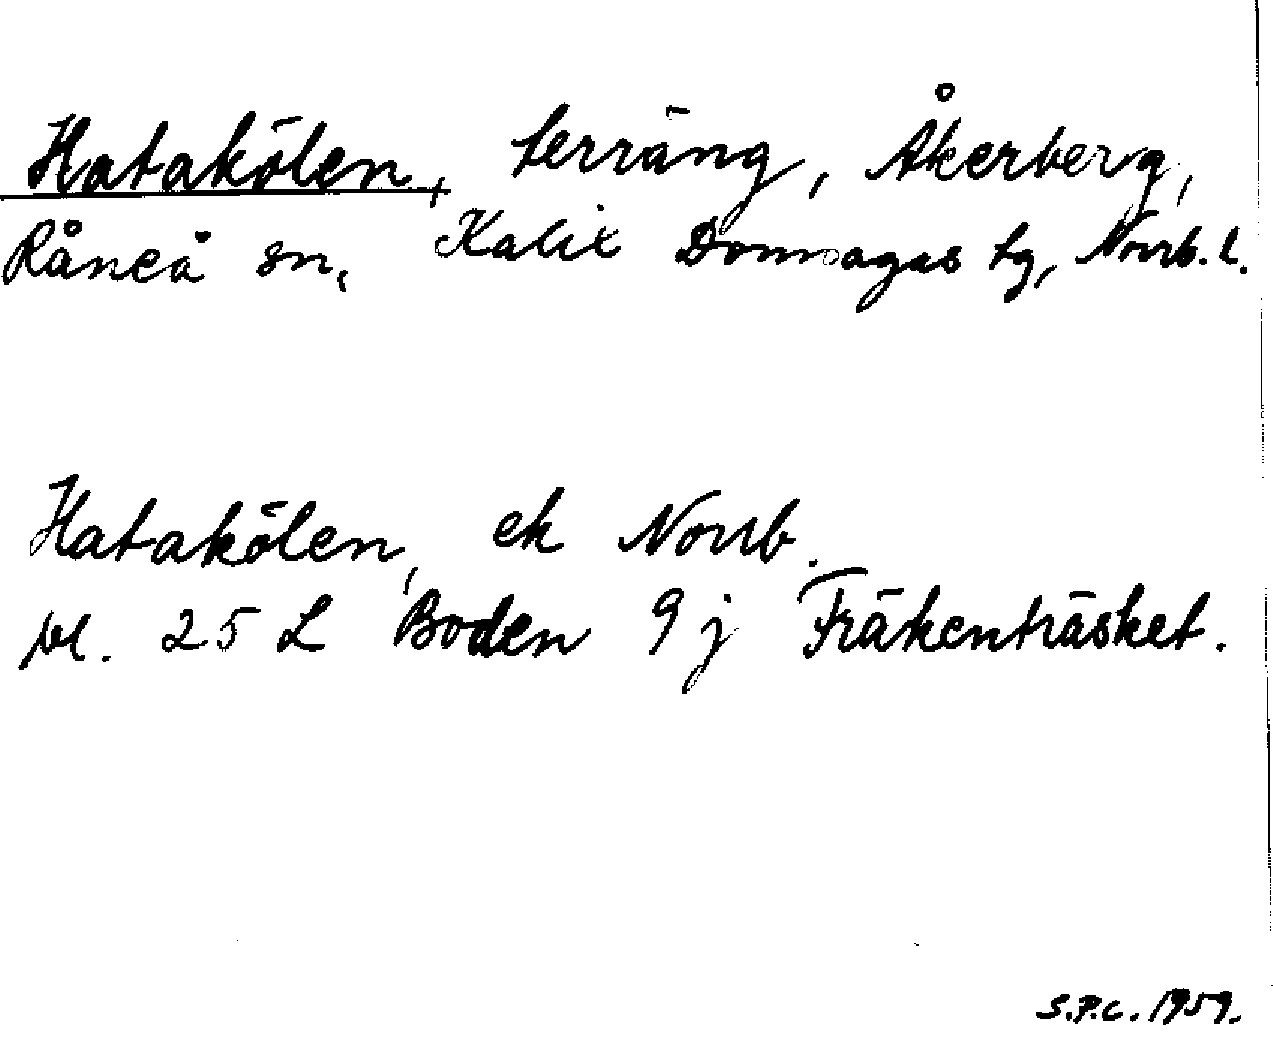 Hatakölen, terräng, Åkerberg,
Råneå sn, Kalix Domsagas tg, Norrb. l.
Hatakölen, ek Norrb.
bl. 25 L Boden 9 j Fräkenträsket.
S.P.C. 1959.